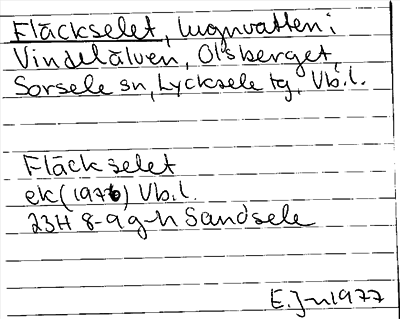 Fläckselet, lugnvatten i
Vindelälven, Olsberget,
Sorsele sn, Lycksele tg, Vb.l.
Fläckselet
ek (1976) Vb.l.
23H 8-9 g-h Sandsele
E.J-n 1977